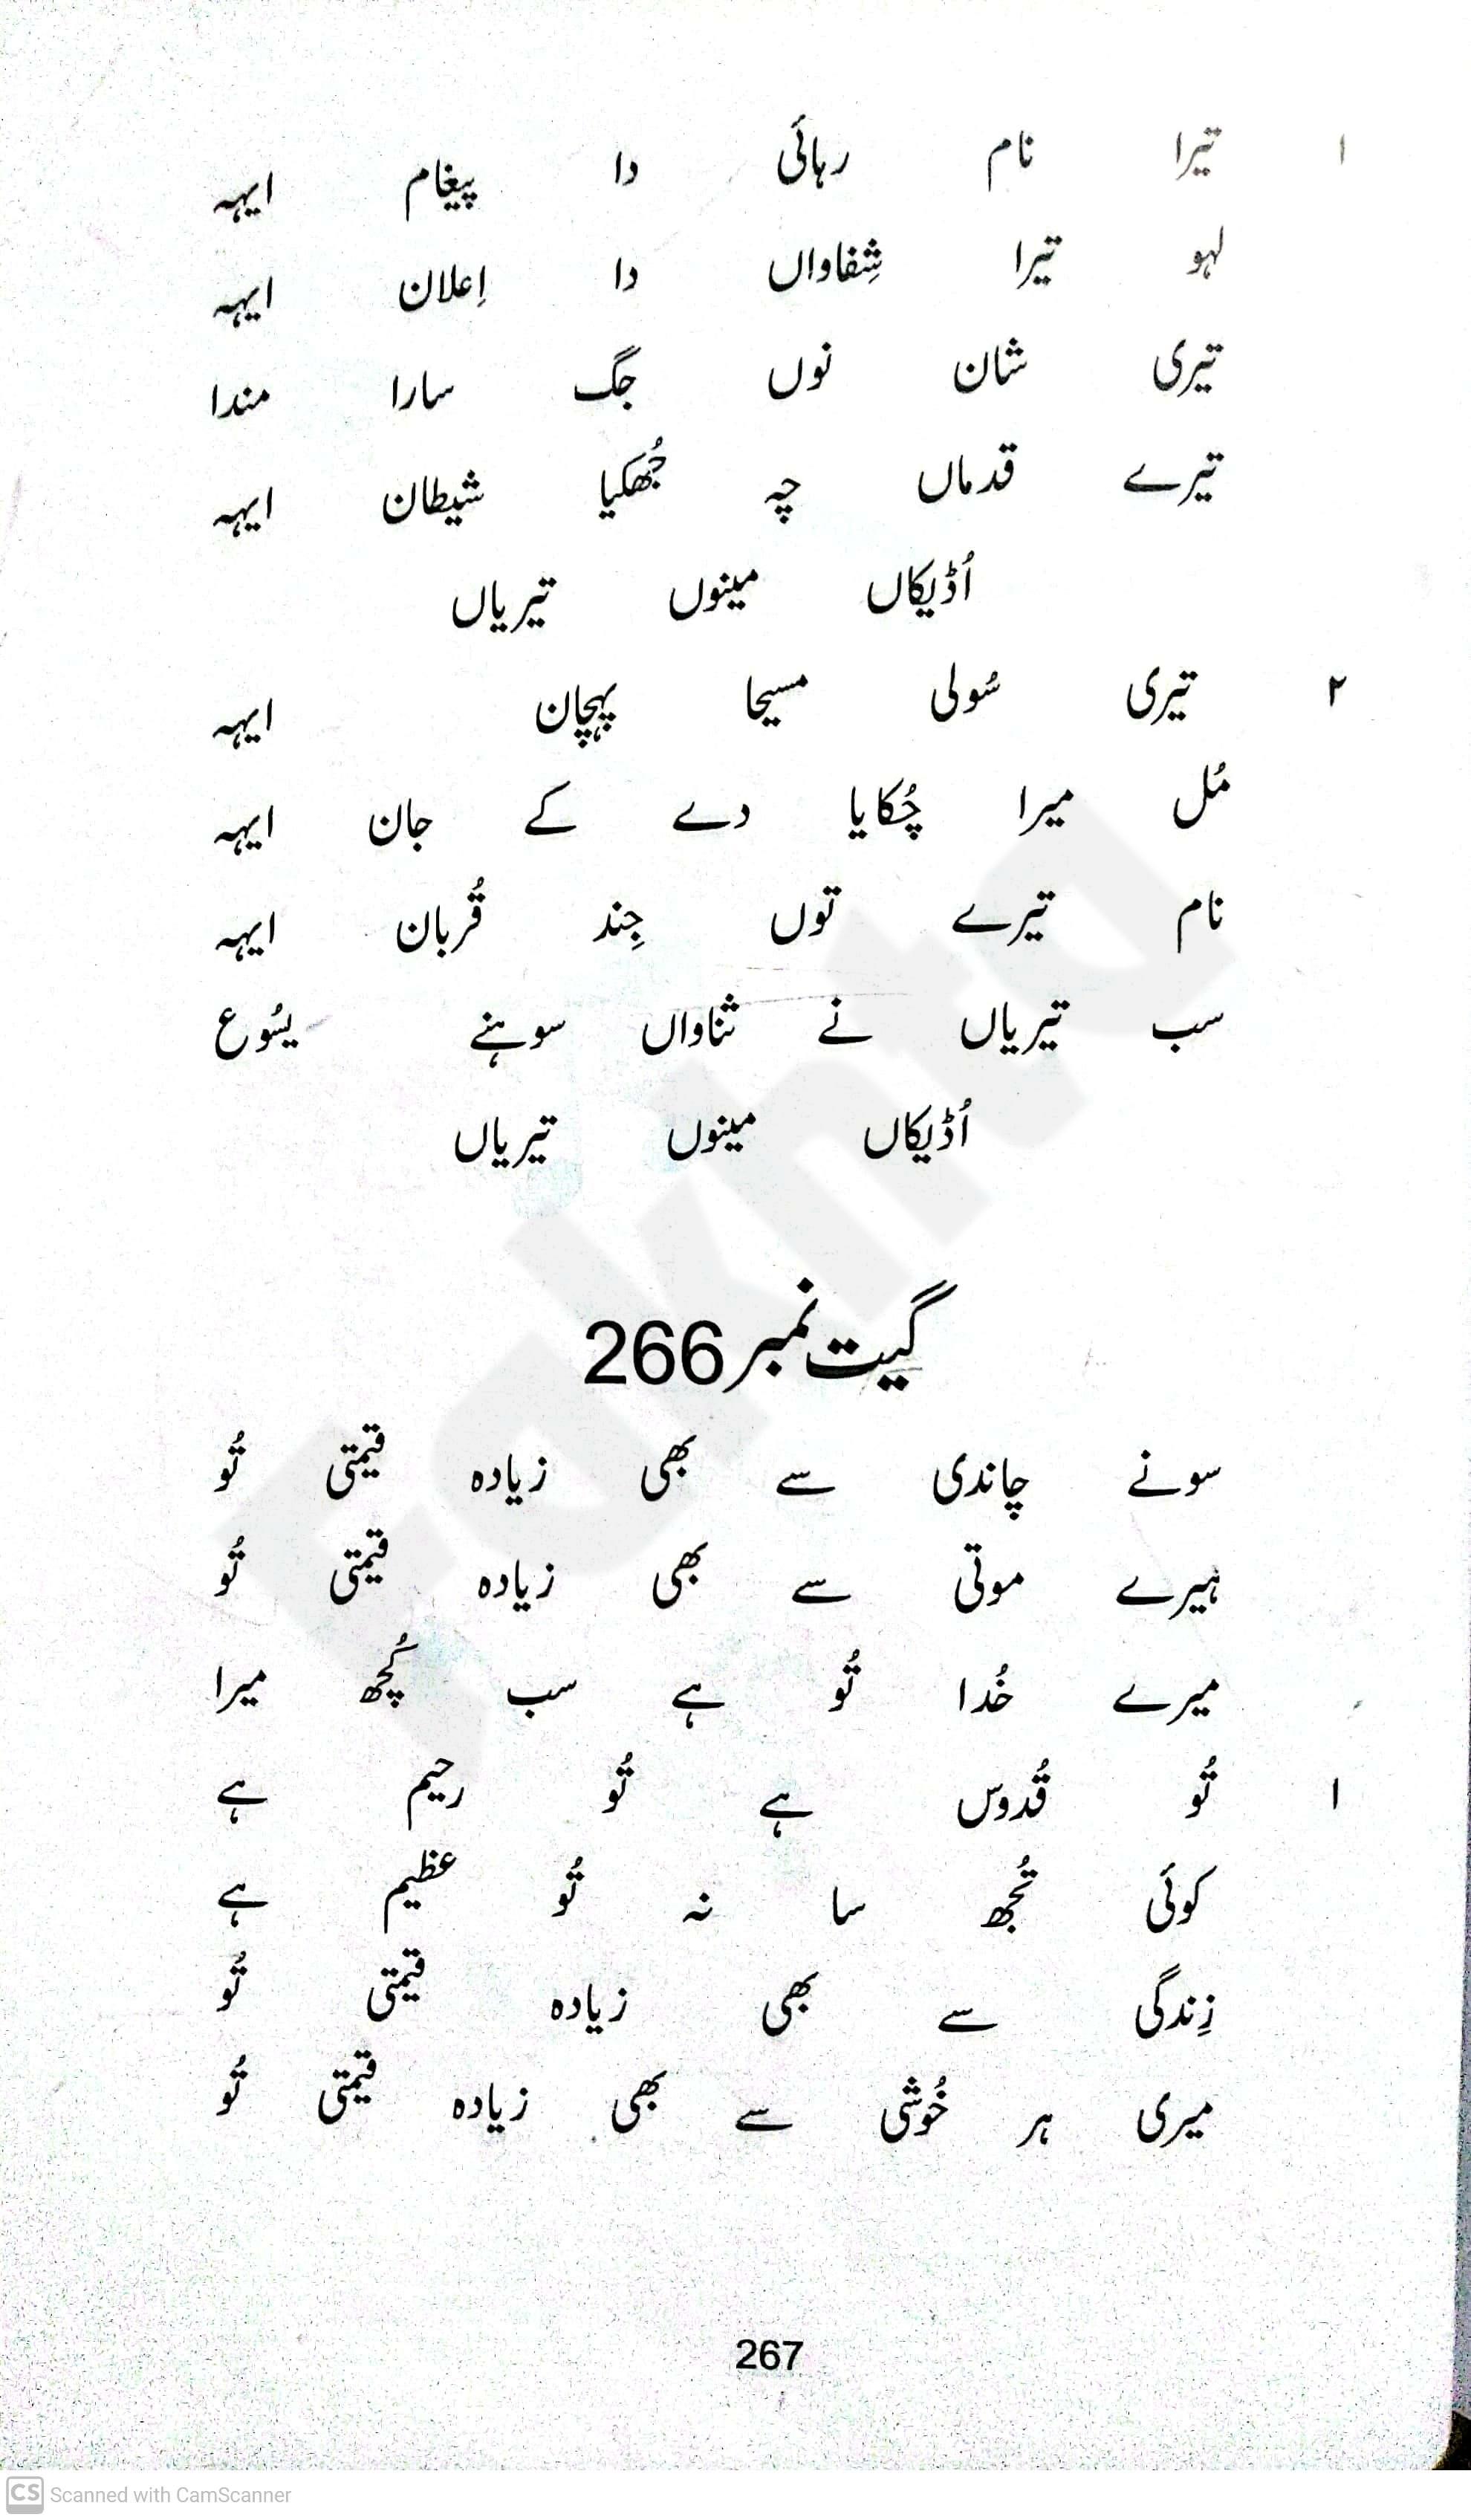 ۱ تیرا نام رہائی دا پیغام ایہہ
لہو تیرا شِفاواں دا اِعلان ایہہ
تیری شان نوں جگ سارا مندا
تیرے قدماں چہ جُھکیا شیطان ایہہ
اُڈیکاں مینوں تیریاں
۲ تیری سُولی مسیحا پہچان ایہہ
مُل میرا چُکایا دے کے جان ایہہ
نام تیرے توں جِند قُربان ایہہ
سب تیریاں نے ثناواں سوہنے یسُوع
اُڈیکاں مینوں تیریاں
گیت نمبر 266
سونے چاندی سے بھی زیادہ قیمتی تُو
ہیرے موتی سے بھی زیادہ قیمتی تُو
میرے خُدا تُو ہے سب کُچھ میرا
۱ تُو قُدوس ہے تُو رحیم ہے
کوئی تُجھ سا نہ تُو عظیم ہے
زِندگی سے بھی زیادہ قیمتی تُو
میری ہر خُوشی سے بھی زیادہ قیمتی تُو
267
Fakhta
CS Scanned with CamScanner